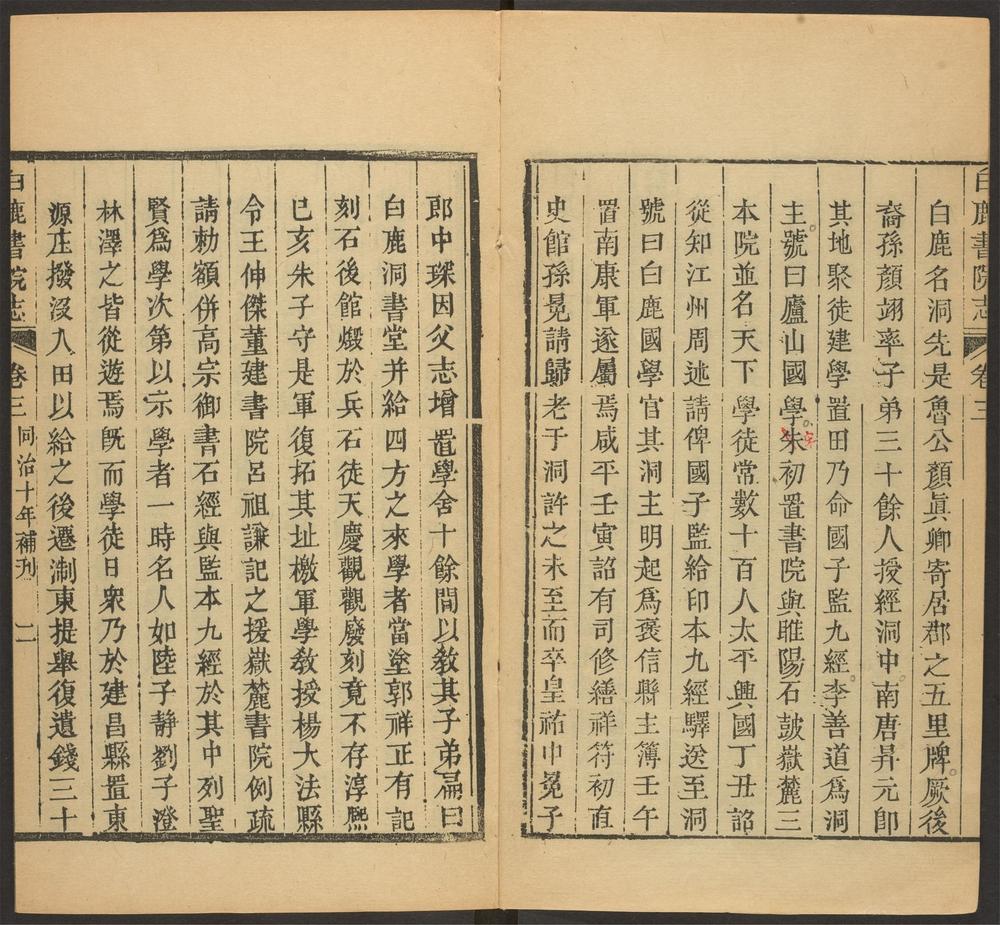 白鹿書院志 卷三
白鹿名洞先是魯公顏眞卿寄居郡之五里牌厥後
裔孫顏翊率子弟三十餘人授經洞中南唐昇元卽
其地聚徒建學置田乃命國子監九經李善道爲洞
主號曰廬山國學宋初置書院與睢陽石皷嶽麓三
本院並名天下學徒常數十百人太平興國丁丑詔
從知江州周述請俾國子監給印本九經驛送至洞
號曰白鹿國學官其洞主明起爲褒信縣主簿壬午
置南康軍遂屬焉咸平壬寅詔有司修繕祥符初直
史館孫冕請歸老于洞許之未至而卒皇祐中冕子
郎中琛因父志增置學舍十餘間以敎其子弟扁曰
白鹿洞書堂并給四方之來學者當塗郭祥正有記
刻石後館煅於兵石徒天慶觀觀廢刻竟不存淳熈
已亥朱子守是軍復拓其址檄軍學敎授楊大法縣
令王仲傑董建書院呂祖謙記之援嶽麓書院例疏
請勅額併高宗御書石經與監本九經於其中列聖
賢爲學次第以示學者一時名人如陸子靜劉子澄
林澤之皆從遊焉旣而學徒日衆乃於建昌縣置東
源庄撥沒入田以給之後遷淛東提舉復遺錢三十
白鹿書院志 卷三 同治十年補刋 二